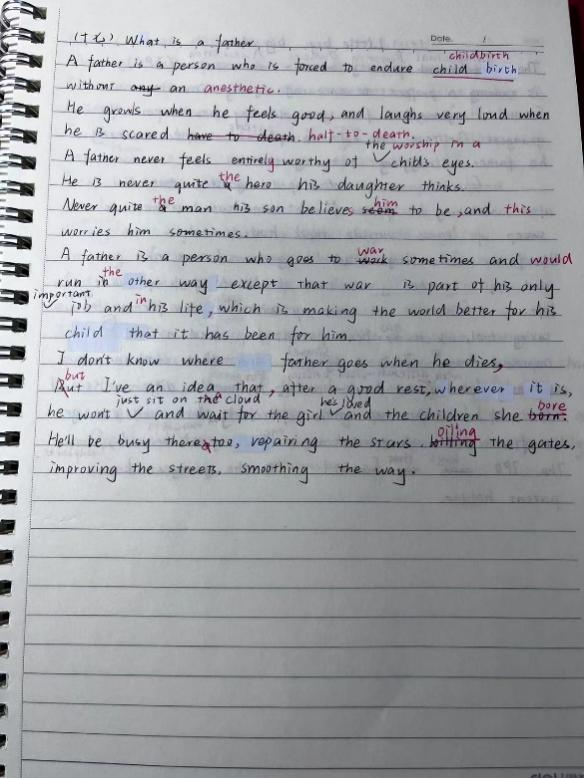 (十七) What is a father
Date. /
childbirth
A father is a person who is forced to endure child birth
without any an anesthetic.
He growls when he feels good, and laughs very loud when
he is scared have to death. half-to-death.
the worship in a
A father never feels entirely worthy of child's eyes.
the
He is never quite a hero his daughter thinks.
the him
Never quite man his son believes seem to be, and this
worries him sometimes.
war
A father is a person who goes to work sometimes and would
the
run in other way except that war is part of his only
important in
job and his life, which is making the world better for his
child that it has been for him.
I don't know where father goes when he dies,
but
But I've an idea that, after a good rest, wherever it is,
just sit on the cloud he's loved
he won't and wait for the girl and the children she born. bore
oiling
He'll be busy there, too, repairing the stars. the gates,
improving the streets, smoothing the way.